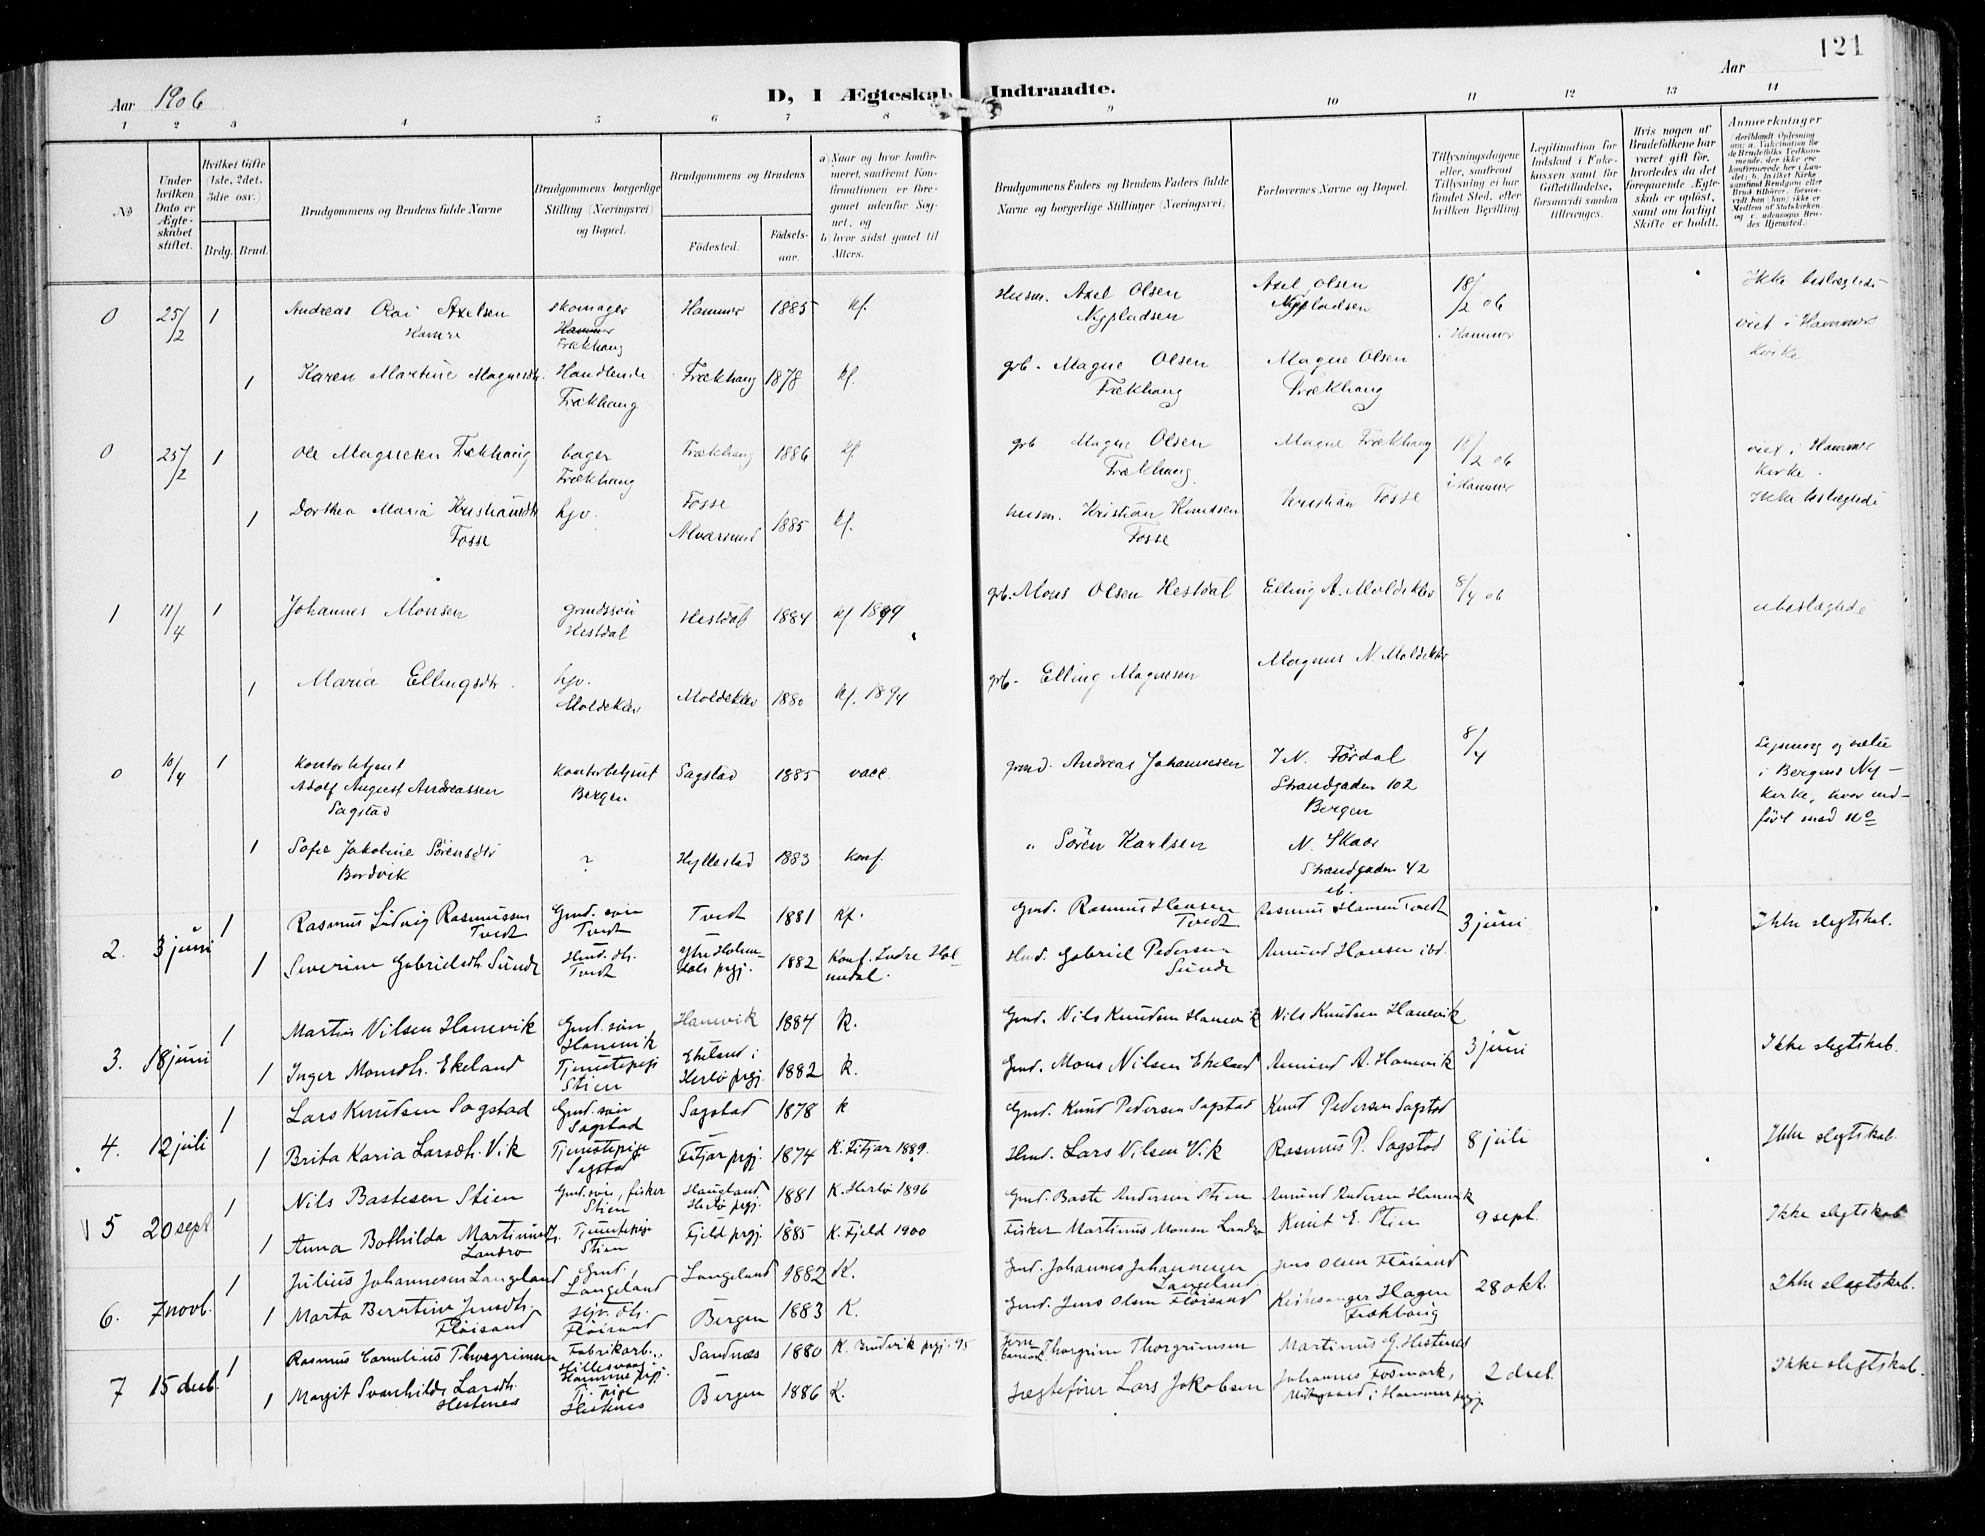 121
Aar 1906
D, I Ægteskab Indtraadte.
Aar
1 2 3 4 5 6 7 8 9 10 11 12 13 14
No
Under hvilken Dato er Ægteskabet stiftet.
Hvilket Gifte (1ste, 2det, 3die osv.)
Brdg. Brud.
Brudgommens og Brudens fulde Navne
Brudgommens borgerlige Stilling (Næringsvei) og Bopæl.
Brudgommens og Brudens
Fødested.
Fødselsaar.
a) Naar og hvor konfirmeret, saafremt Konfirmationen er foregaaet udenfor Sognet, og
b) hvor sidst gaaet til Alters.
Brudgommens Faders og Brudens Faders fulde Navne og borgerlige Stillinger (Næringsvei)
Forlovernes Navne og Bopæl.
Tillysningsdagene eller, saafremt Tillysning ei har fundet Sted, efter hvilken Bevilling.
Legitimation for Indskud i Enkekassen samt for Giftetilladelse, forsaavidt saadan tiltrænges.
Hvis nogen af Brudefolkene har været gift før, hvorledes da det foregaaende Ægteskab er opløst, samt om lovligt Skifte er holdt.
Anmerkninger
0 25/2 1 Andreas Axelsen skomager Hammer 1885 kf. Husm. Axel Olsen Axel Olsen 18/2 06 Ikke beslægtede
Frækhaug Nypladsen Nypladsen i Hammer viet i Hammer
1 Karen Martine Magnesdtr. Handlende Frækhaug 1878 kf. grb. Magne Olsen Magne Olsen Kirke
Frækhaug Frækhaug Frækhaug
0 25/2 1 Ole Magnesen Frækhaug bager Frækhaug 1886 kf grb Magne Olsen Magne Frækhaug 18/2 06 viet i Hammer
Frækhaug Frækhaug i Hammer Kirke.
1 Dorthea Maria Kristiansdtr hjv. Fosse 1885 kf. husm. Kristian Knudsen Kristian Fosse Ikke beslægtede
Fosse Alversund Fosse
1 11/4 1 Johannes Monsen grmdssøn Hestdal 1884 kf 1899 grb. Mons Olsen Hestdal Elling A. Moldeklev 8/4 06 ubeslægtede
Hestdal
1 Maria Ellingsdtr. hjv. Moldeklev 1880 kf. 1894 grb. Elling Magnesen Magnus N. Moldeklev
Moldeklev
0 10/4 1 Kontorbetjent Kontorbetjent Sagstad 1885 vacc. grmd. Andreas Johannesen J N. Førdal 8/4
Adolf August Andreassen Bergen Strandgaden 102 i Bergens Ny-
Sagstad Bergen kirke, hvor ind-
ført med No
1 Sofie Jakobine Sörensdtr ? Hyllestad 1883 konf. " Sören Karlsen N. Skaar
Bordvik Strandgaden 42
2. 3 juni 1 Rasmus Ludvig Rasmussen Tvedt Gmd. søn Tvedt Tvedt 1881 kf. Gmd. Rasmus Hansen Tvedt Rasmus Hansen Tvedt 3 juni Ikke slegtskab.
1 Severine Gabrielsdtr. Sunde Hmd. dtr. Tvedt Ytre Holmdals prgj. 1882 Konf. Indre Holmedal. Hmd. Gabriel Pedersen Sunde Amund Hansen ibd.
3. 18 juni 1 Martin Nilsen Hanevik Gmd. søn Hanevik Hanevik 1884 K. Gmd. Nils Knudsen Hanevik Nils Knudsen Hanevik 3 juni Ikke slegtskab.
1 Inger Monsdtr. Ekeland Tjenestepige Stien Ekeland i Herlö prgj. 1882 K. Gmd. Mons Nilsen Ekeland Amund A. Hanevik
4. 12 juli 1 Lars Knudsen Sagstad Gmd. søn Sagstad Sagstad 1878 K Gmd. Knud Pedersen Sagstad Knut Pedersen Sagstad 8 juli Ikke slegtskab.
1 Brita Karia Larsdtr. Vik Tjenestepige Sagstad Fitjar prgj. 1874 K. Fitjar 1889. Hmd. Lars Nilsen Vik Rasmus P. Sagstad
5 20 sept. 1 Nils Bastesen Stien Gmd. søn, fisker Stien Haugland Herlö prgj. 1881 K. Herlö 1896 Gmd. Baste Andersen Stien Amund Andersen Hanevik 9 sept. Ikke slegtskab
1 Anna Bothilda Martinusdtr. Landro Tjenestepige Stien Fjeld prgj. 1885 K. Fjeld 1900 Fisker Martinus Monsen Landro Knut E. Stien
6. 7 novb. 1 Julius Johannesen Langeland Gmd., Langeland Langeland 1882 K. Gmd. Johannes Johannesen Langeland Jens Olsen Flöisand 28 okt. Ikke slegtskab.
1 Marta Berntine Jensdtr. Flöisand Hjv. dtr. Flöisand Bergen 1883 K. Gmd. Jens Olsen Flöisand Kirkesanger Hagen Frækhaug
7 15 decb. 1 Rasmus Cornelius Thorgrimsen Fabrikarb. Hillesvaag Hammer prgj. Sandnæs 1880 K. prgj. 95 Thorgrim Thorgrimsen Martinus G. Hestenes 2 decb. Ikke slegtskab.
1 Margit Svanhilde Larsdtr. Hestenes Tj. pige Hestenes Bergen 1886 K. Jægtefører Lars Jakobsen Johannes Fosmark, i Hammer prgj.